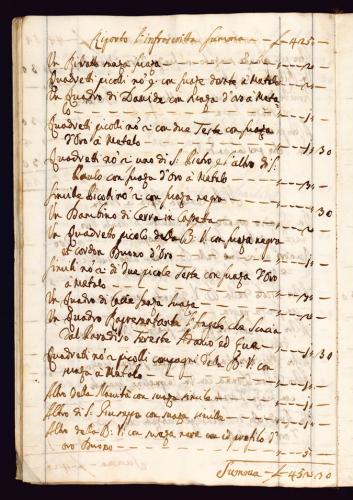 Riporto l'infrascritta Summa — £ 425:
Un Ritratto senza suaza
Quadretti picoli nò 2 con suaze dorate à Metalo
Un Quadro di Davide con suaza d'oro à Meta
lo
Quadretti picoli nò 2 con due Teste con suaza
d'Oro à Metalo — 30
Quadretti nò 2 uno di S: Pietro e l'altro di S:
Paulo con suaza d'Oro à Metalo
Simile Picoli nò 2 con suaza negra — 30
Un Bambino di Cerra in Casseta
Un Quadreto picolo della B: V: con suaza negra
et cordon Buono d'Oro
Simili nò 2 di due picole Teste con suaza d'Oro
à Metalo
Un Quadro di senza suaza
Un Quadro Rapresentante l'Angelo che Scacia
dal Paradiso Terestre Adamo ed Eva
Quadretti nò 2 picoli compagni della B: V: con — 30
suaza à Metalo
Altro della con suaza simile
Altro di S: Giuseppe con suaza simile
Altro della B: V: con suaza nera con il profilo d'
oro Buono
Summa — £ 452:10